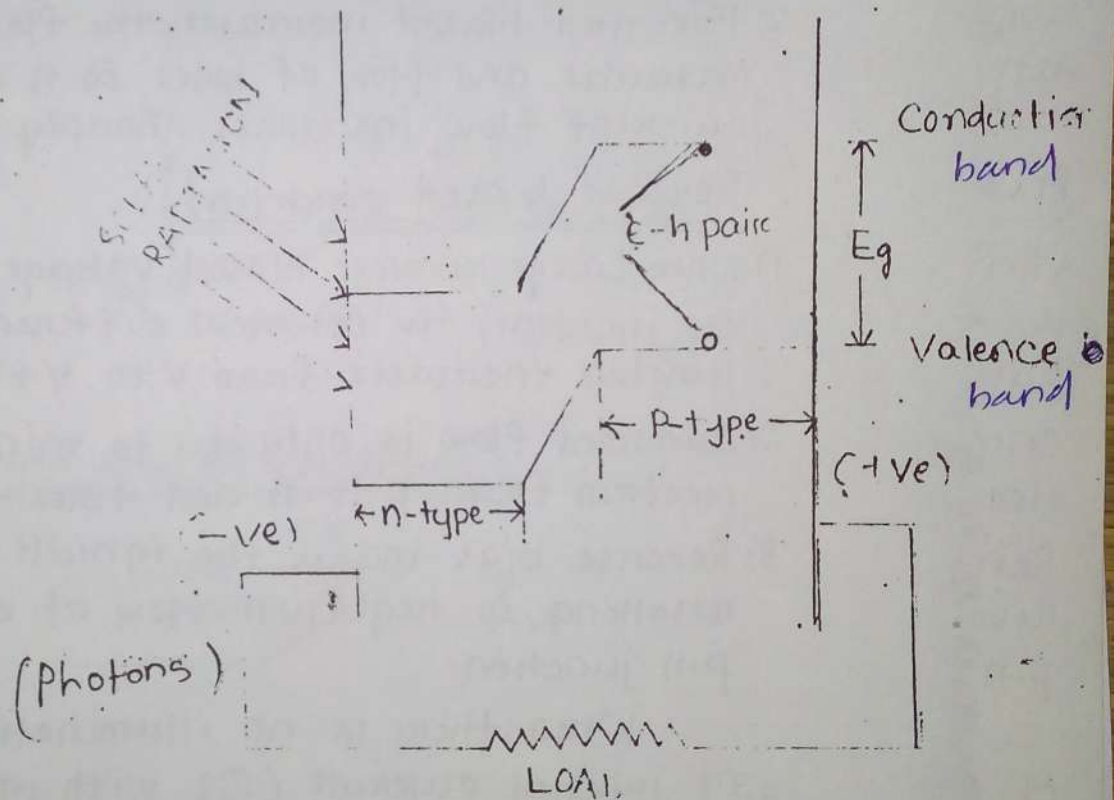 Conduction
band
e-h pair
Eg
Valence
band
P-type
(+ve)
n-type
-ve)
(Photons)
LOAD